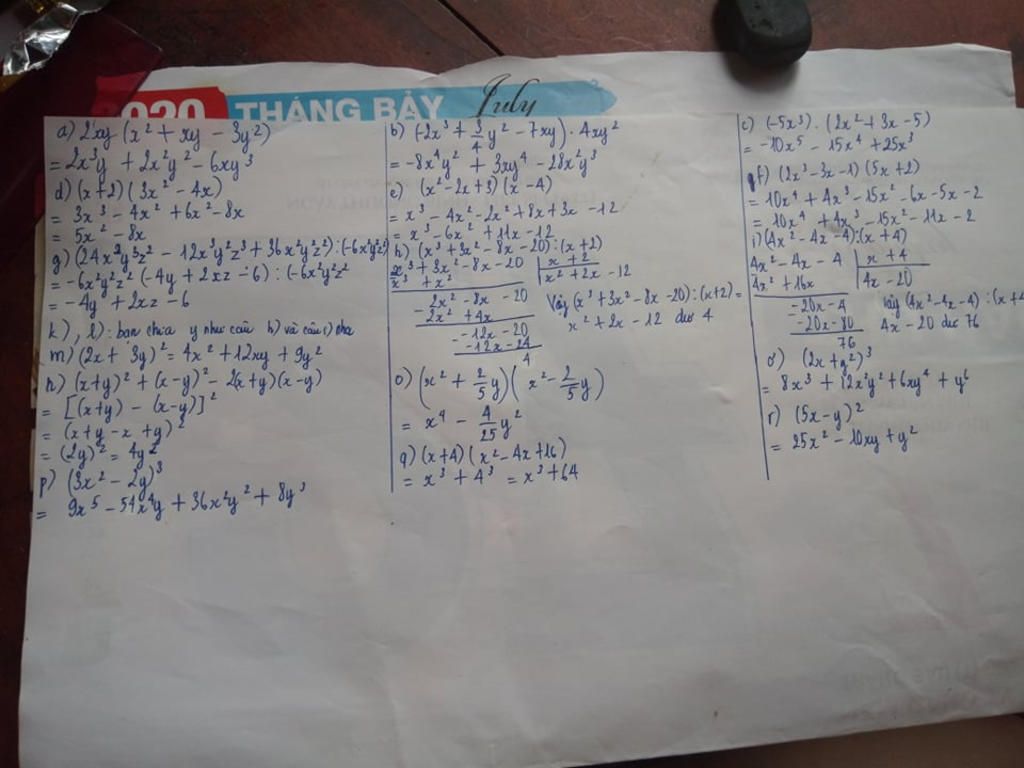 2020 THÁNG BẢY July
a) 2xy (x² + xy - 3y²)
= 2x³y + 2x²y² - 6xy³
d) (x+2)(3x² - 4x)
= 3x³ - 4x² + 6x² - 8x
= 5x² - 8x
g) (24x²y³z² - 12x³y²z³ + 36x²y²z²) : (-6x²y²z²)
= -6x²y²z² (-4y + 2xz - 6) : (-6x²y²z²
= -4y + 2xz - 6
k), l): bạn chia y như câu h) và câu i) nha
m) (2x + 3y)² = 4x² + 12xy + 9y²
n) (x+y)² + (x-y)² - 2(x+y)(x-y)
= [(x+y) - (x-y)]²
= (x+y - x + y)²
= (2y)² = 4y²
p) (3x² - 2y)³
= 9x⁵ - 54x⁴y + 36x²y² + 8y³
b) (-2x³ + 3/4 y² - 7xy) . 4xy²
= -8x⁴y² + 3xy⁴ - 28x²y³
e) (x² - 2x + 3)(x - 4)
= x³ - 4x² - 2x² + 8x + 3x - 12
= x³ - 6x² + 11x - 12
h) (x³ + 3x² - 8x - 20) : (x + 2)
x³ + 3x² - 8x - 20 | x + 2
x³ + x² | x² + 2x - 12
2x² - 8x - 20
- 2x² + 4x
-12x - 20
- -12x - 24
4
Vậy (x³ + 3x² - 8x - 20) : (x+2) =
x² + 2x - 12 dư 4
o) (x² + 2/5 y)(x² - 2/5 y)
= x⁴ - 4/25 y²
q) (x + 4)(x² - 4x + 16)
= x³ + 4³ = x³ + 64
c) (-5x³) . (2x² + 3x - 5)
= -10x⁵ - 15x⁴ + 25x³
f) (2x³ - 3x - 1)(5x + 2)
= 10x⁴ + 4x³ - 15x² - 6x - 5x - 2
= 10x⁴ + 4x³ - 15x² - 11x - 2
i) (4x² - 4x - 4) : (x + 4)
4x² - 4x - 4 | x + 4
4x² + 16x | 4x - 20
-20x - 4
-20x - 80
76
Vậy (4x² - 4x - 4) : (x + 4
4x - 20 dư 76
ơ) (2x + y²)³
= 8x³ + 12x²y² + 6xy⁴ + y⁶
r) (5x - y)²
= 25x² - 10xy + y²